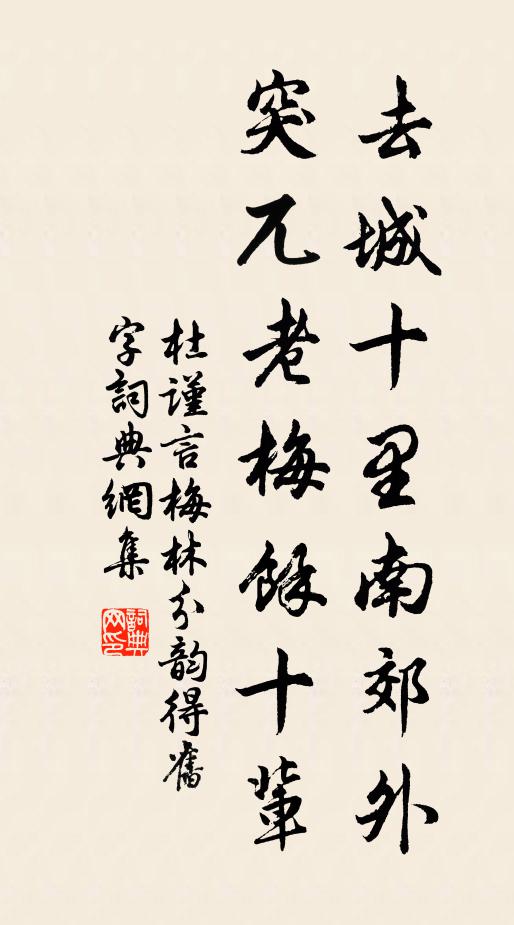 去城十里南郊外
突兀老梅餘十輩
杜謹言梅林分韵得舊
字詞典網集
詞典
网印